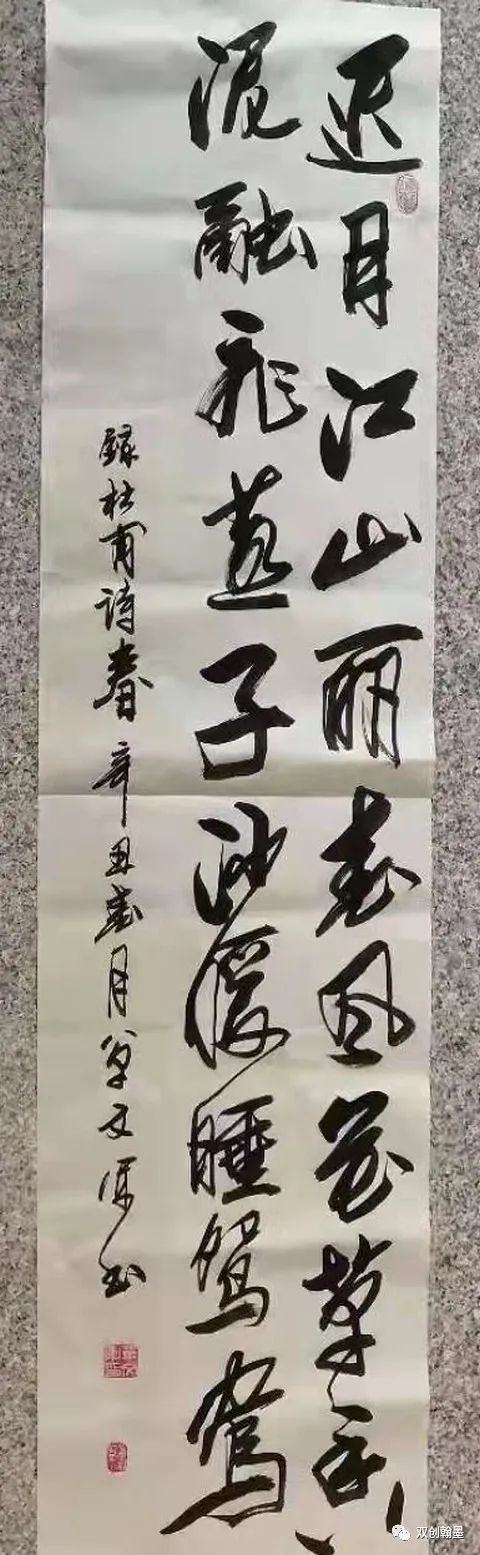 迟日江山丽春风花草香
泥融飛燕子沙暖睡鸳鸯
録杜甫诗春 辛丑春月 文 书
双创翰墨